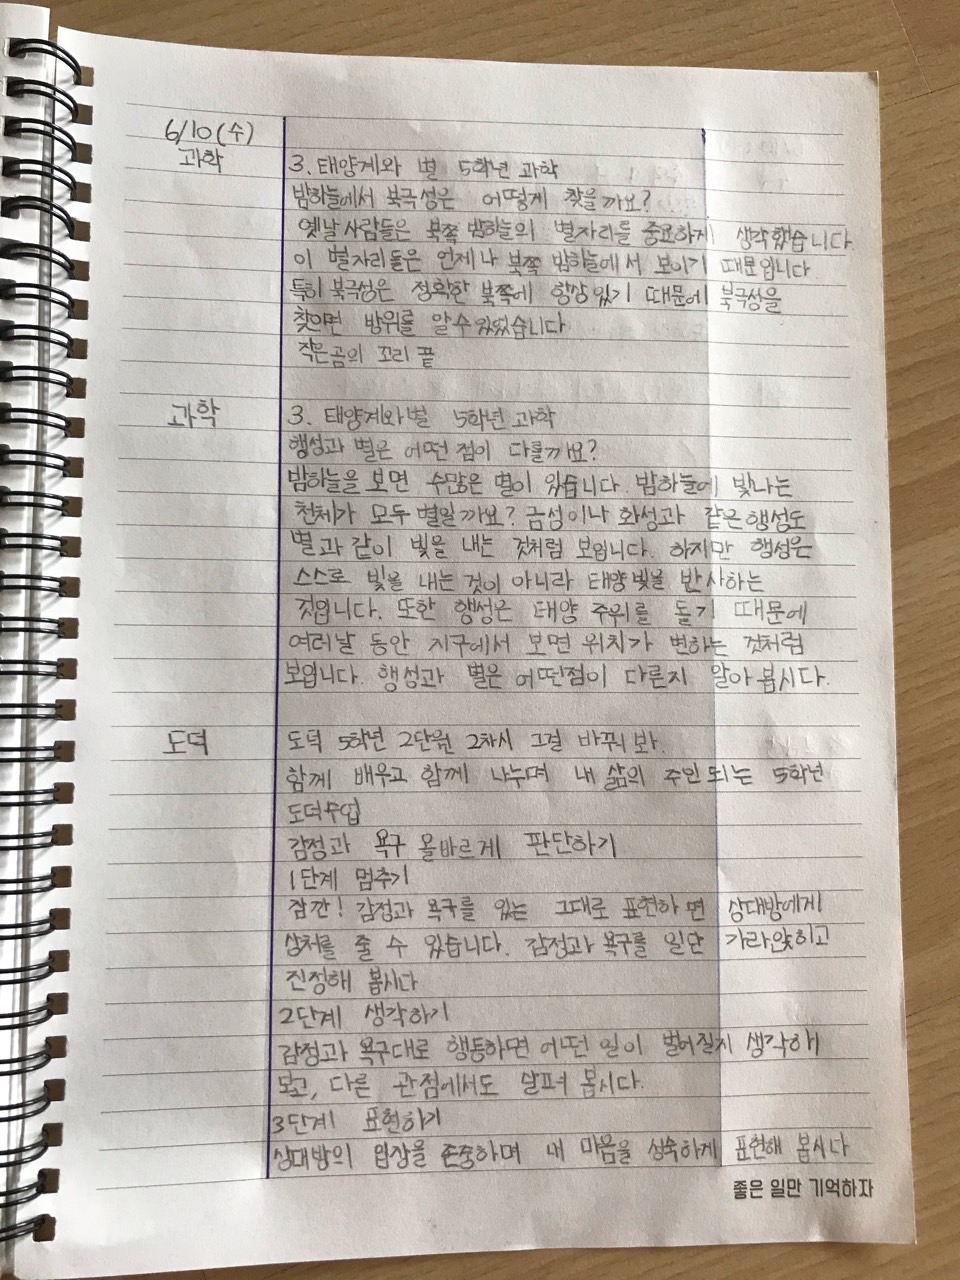 6/10(수)
과학
3. 태양계와 별 5학년 과학
밤하늘에서 북극성은 어떻게 찾을까요?
옛날 사람들은 북쪽 밤하늘의 별자리를 중요하게 생각했습니다.
이 별자리들은 언제나 북쪽 밤하늘에서 보이기 때문입니다
특히 북극성은 정확한 북쪽에 항상 있기 때문에 북극성을
찾으면 방위를 알수 있었습니다
작은곰의 꼬리 끝
과학
3. 태양계와 별 5학년 과학
행성과 별은 어떤 점이 다를까요?
밤하늘을 보면 수많은 별이 있습니다. 밤하늘에 빛나는
천체가 모두 별일까요? 금성이나 화성과 같은 행성도
별과 같이 빛을 내는 것처럼 보입니다. 하지만 행성은
스스로 빛을 내는 것이 아니라 태양빛을 반사하는
것입니다. 또한 행성은 태양 주위를 돌기 때문에
여러날 동안 지구에서 보면 위치가 변하는 것처럼
보입니다. 행성과 별은 어떤점이 다른지 알아 봅시다.
도덕
도덕 5학년 2단원 2차시 그걸 바꿔봐.
함께 배우고 함께 나누며 내 삶의 주인 되는 5학년
도덕수업
감정과 욕구 올바르게 판단하기
1단계 멈추기
잠깐! 감정과 욕구를 있는 그대로 표현하면 상대방에게
상처를 줄 수 있습니다. 감정과 욕구를 일단 가라앉히고
진정해 봅시다
2단계 생각하기
감정과 욕구대로 행동하면 어떤 일이 벌어질지 생각해
보고, 다른 관점에서도 살펴 봅시다.
3단계 표현하기
상대방의 입장을 존중하며 내 마음을 성숙하게 표현해 봅시다
좋은 일만 기억하자